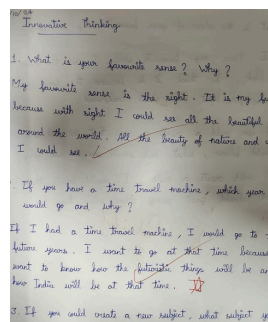 Innovative Thinking
1. What is your favourite sense? Why?
My favourite sense is the sight. It is my fa
because with sight I could see all the beautiful
around the world. All the beauty of nature and
I could see.
If you have a time travel machine, which year
would go and why?
If I had a time travel machine, I would go to
future years. I want to go at that time because
want to know how the futuristic things will be an
how India will be at that time.
3. If you could create a new subject, what subject y